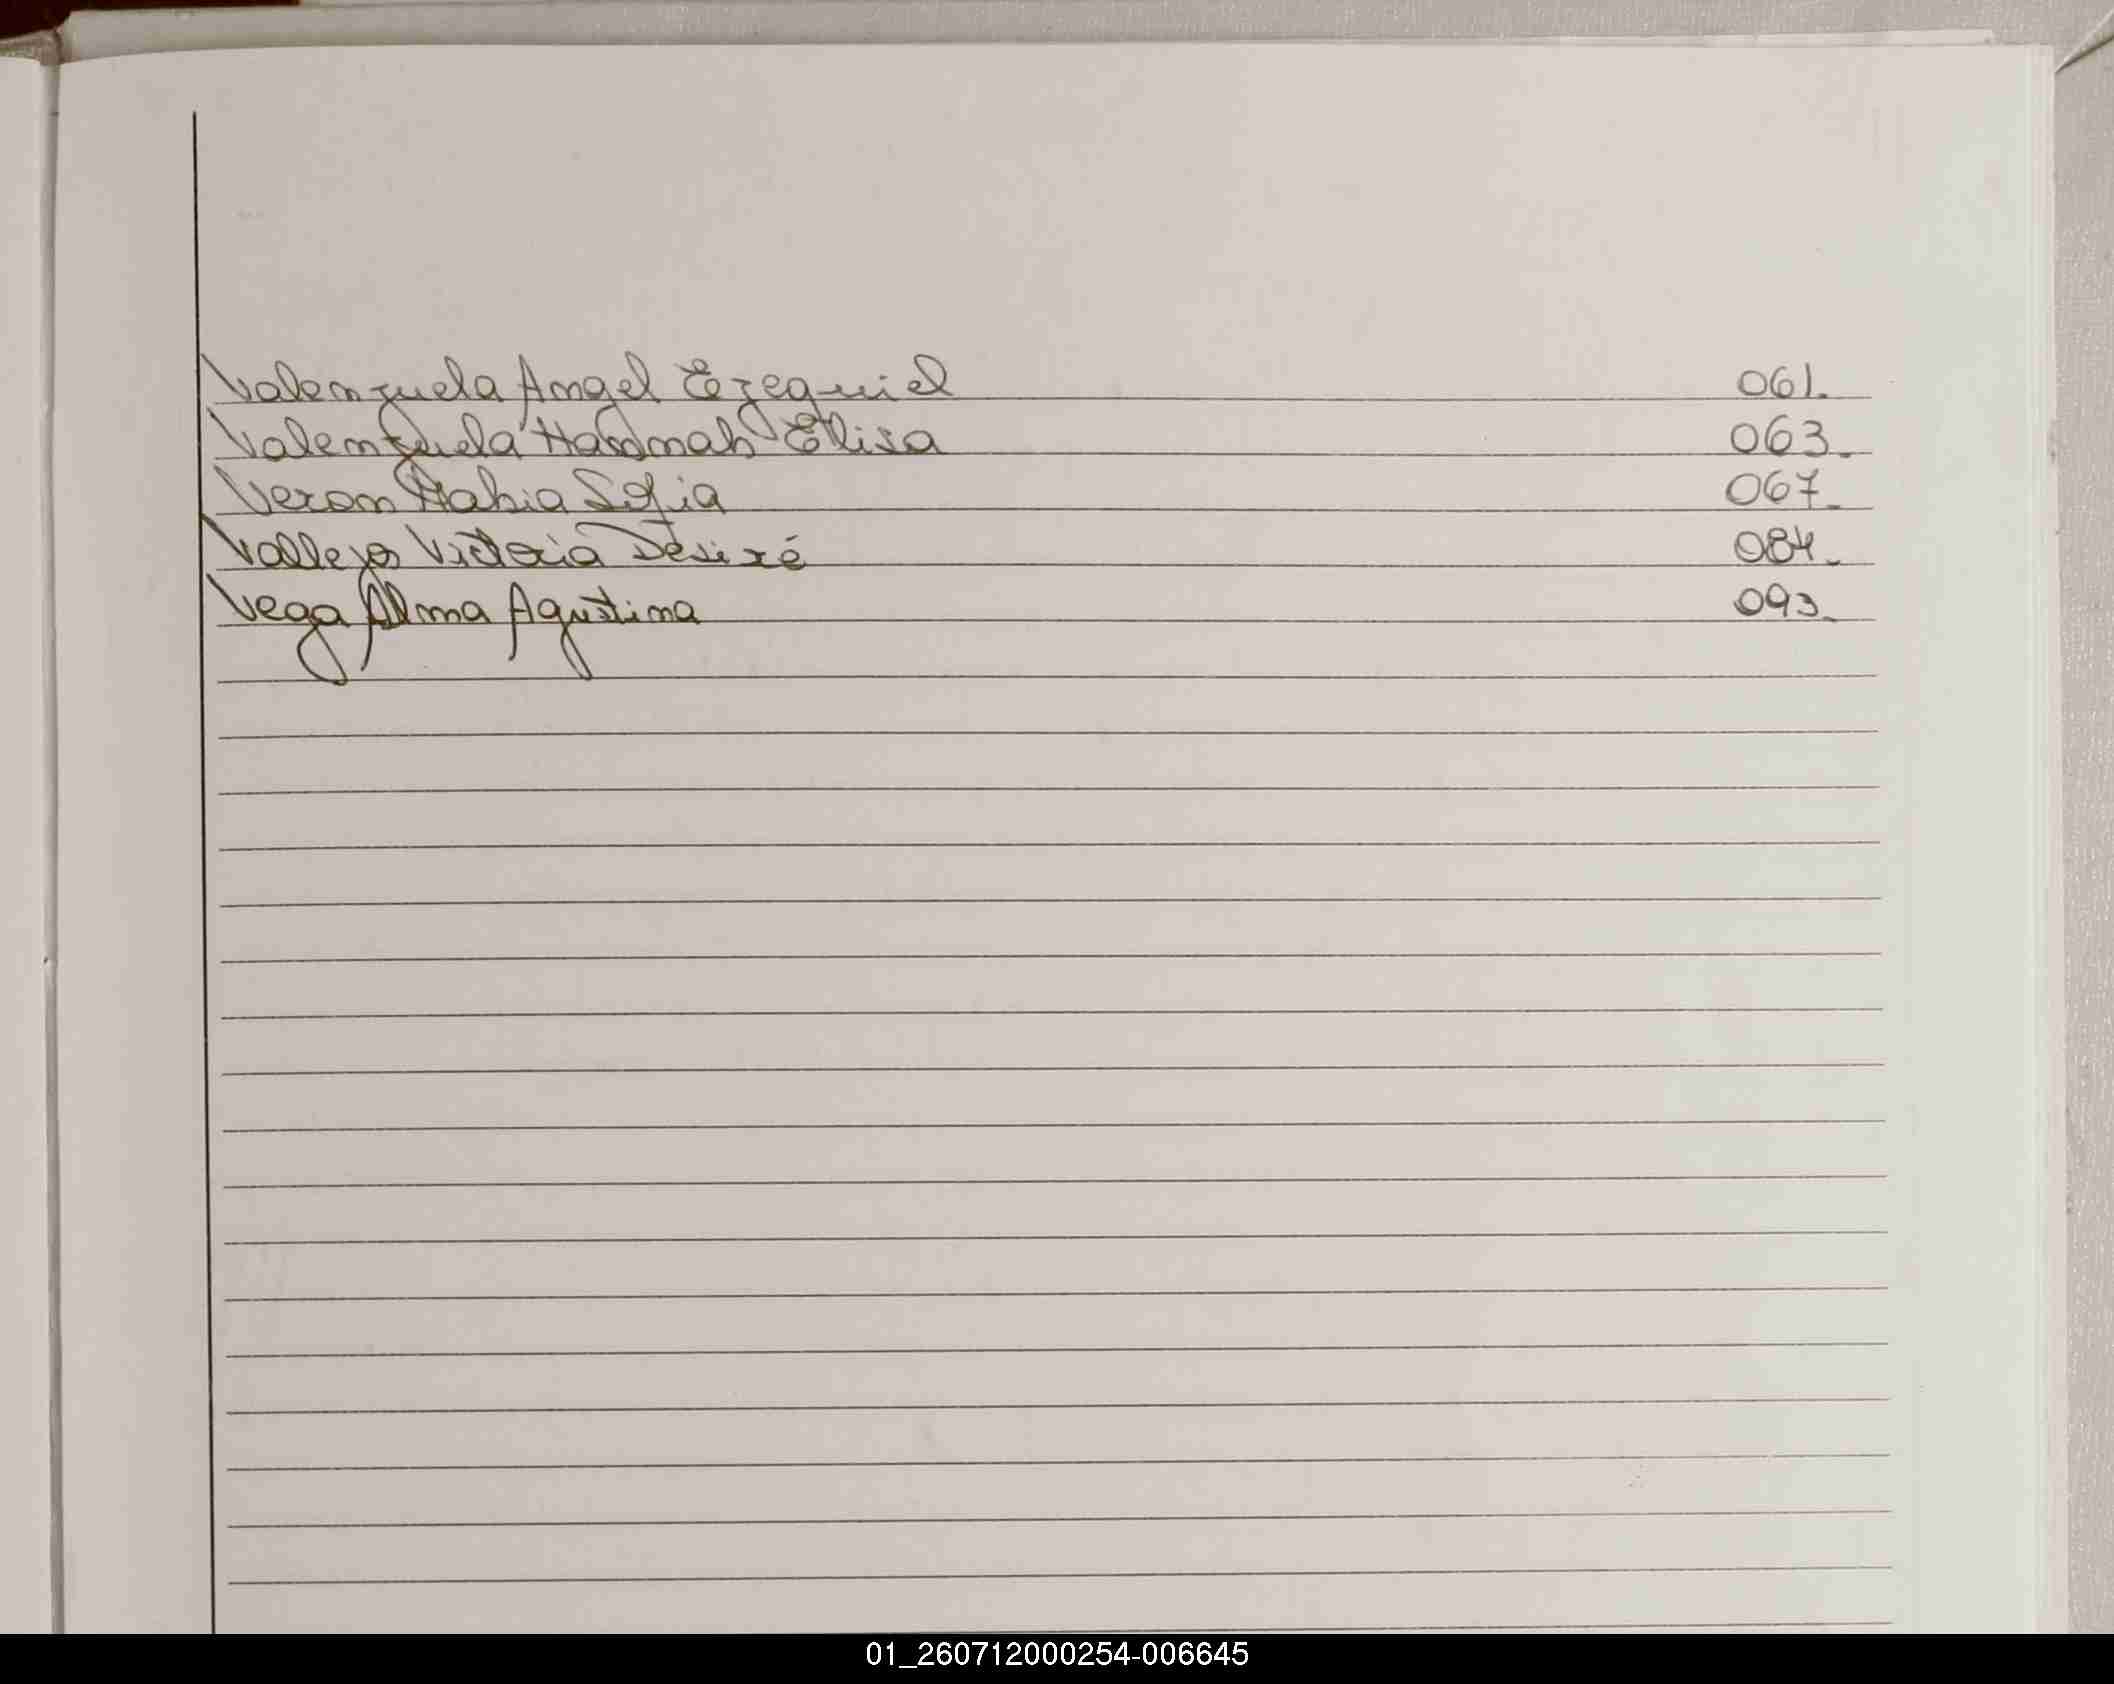 Valenzuela Angel Ezequiel 061.
Valenzuela Hannah Elisa 063.
Veron Sofia 067.
Vallejos Victoria Desiré 084.
Vega Alma Agustina 093.
01_260712000254-006645